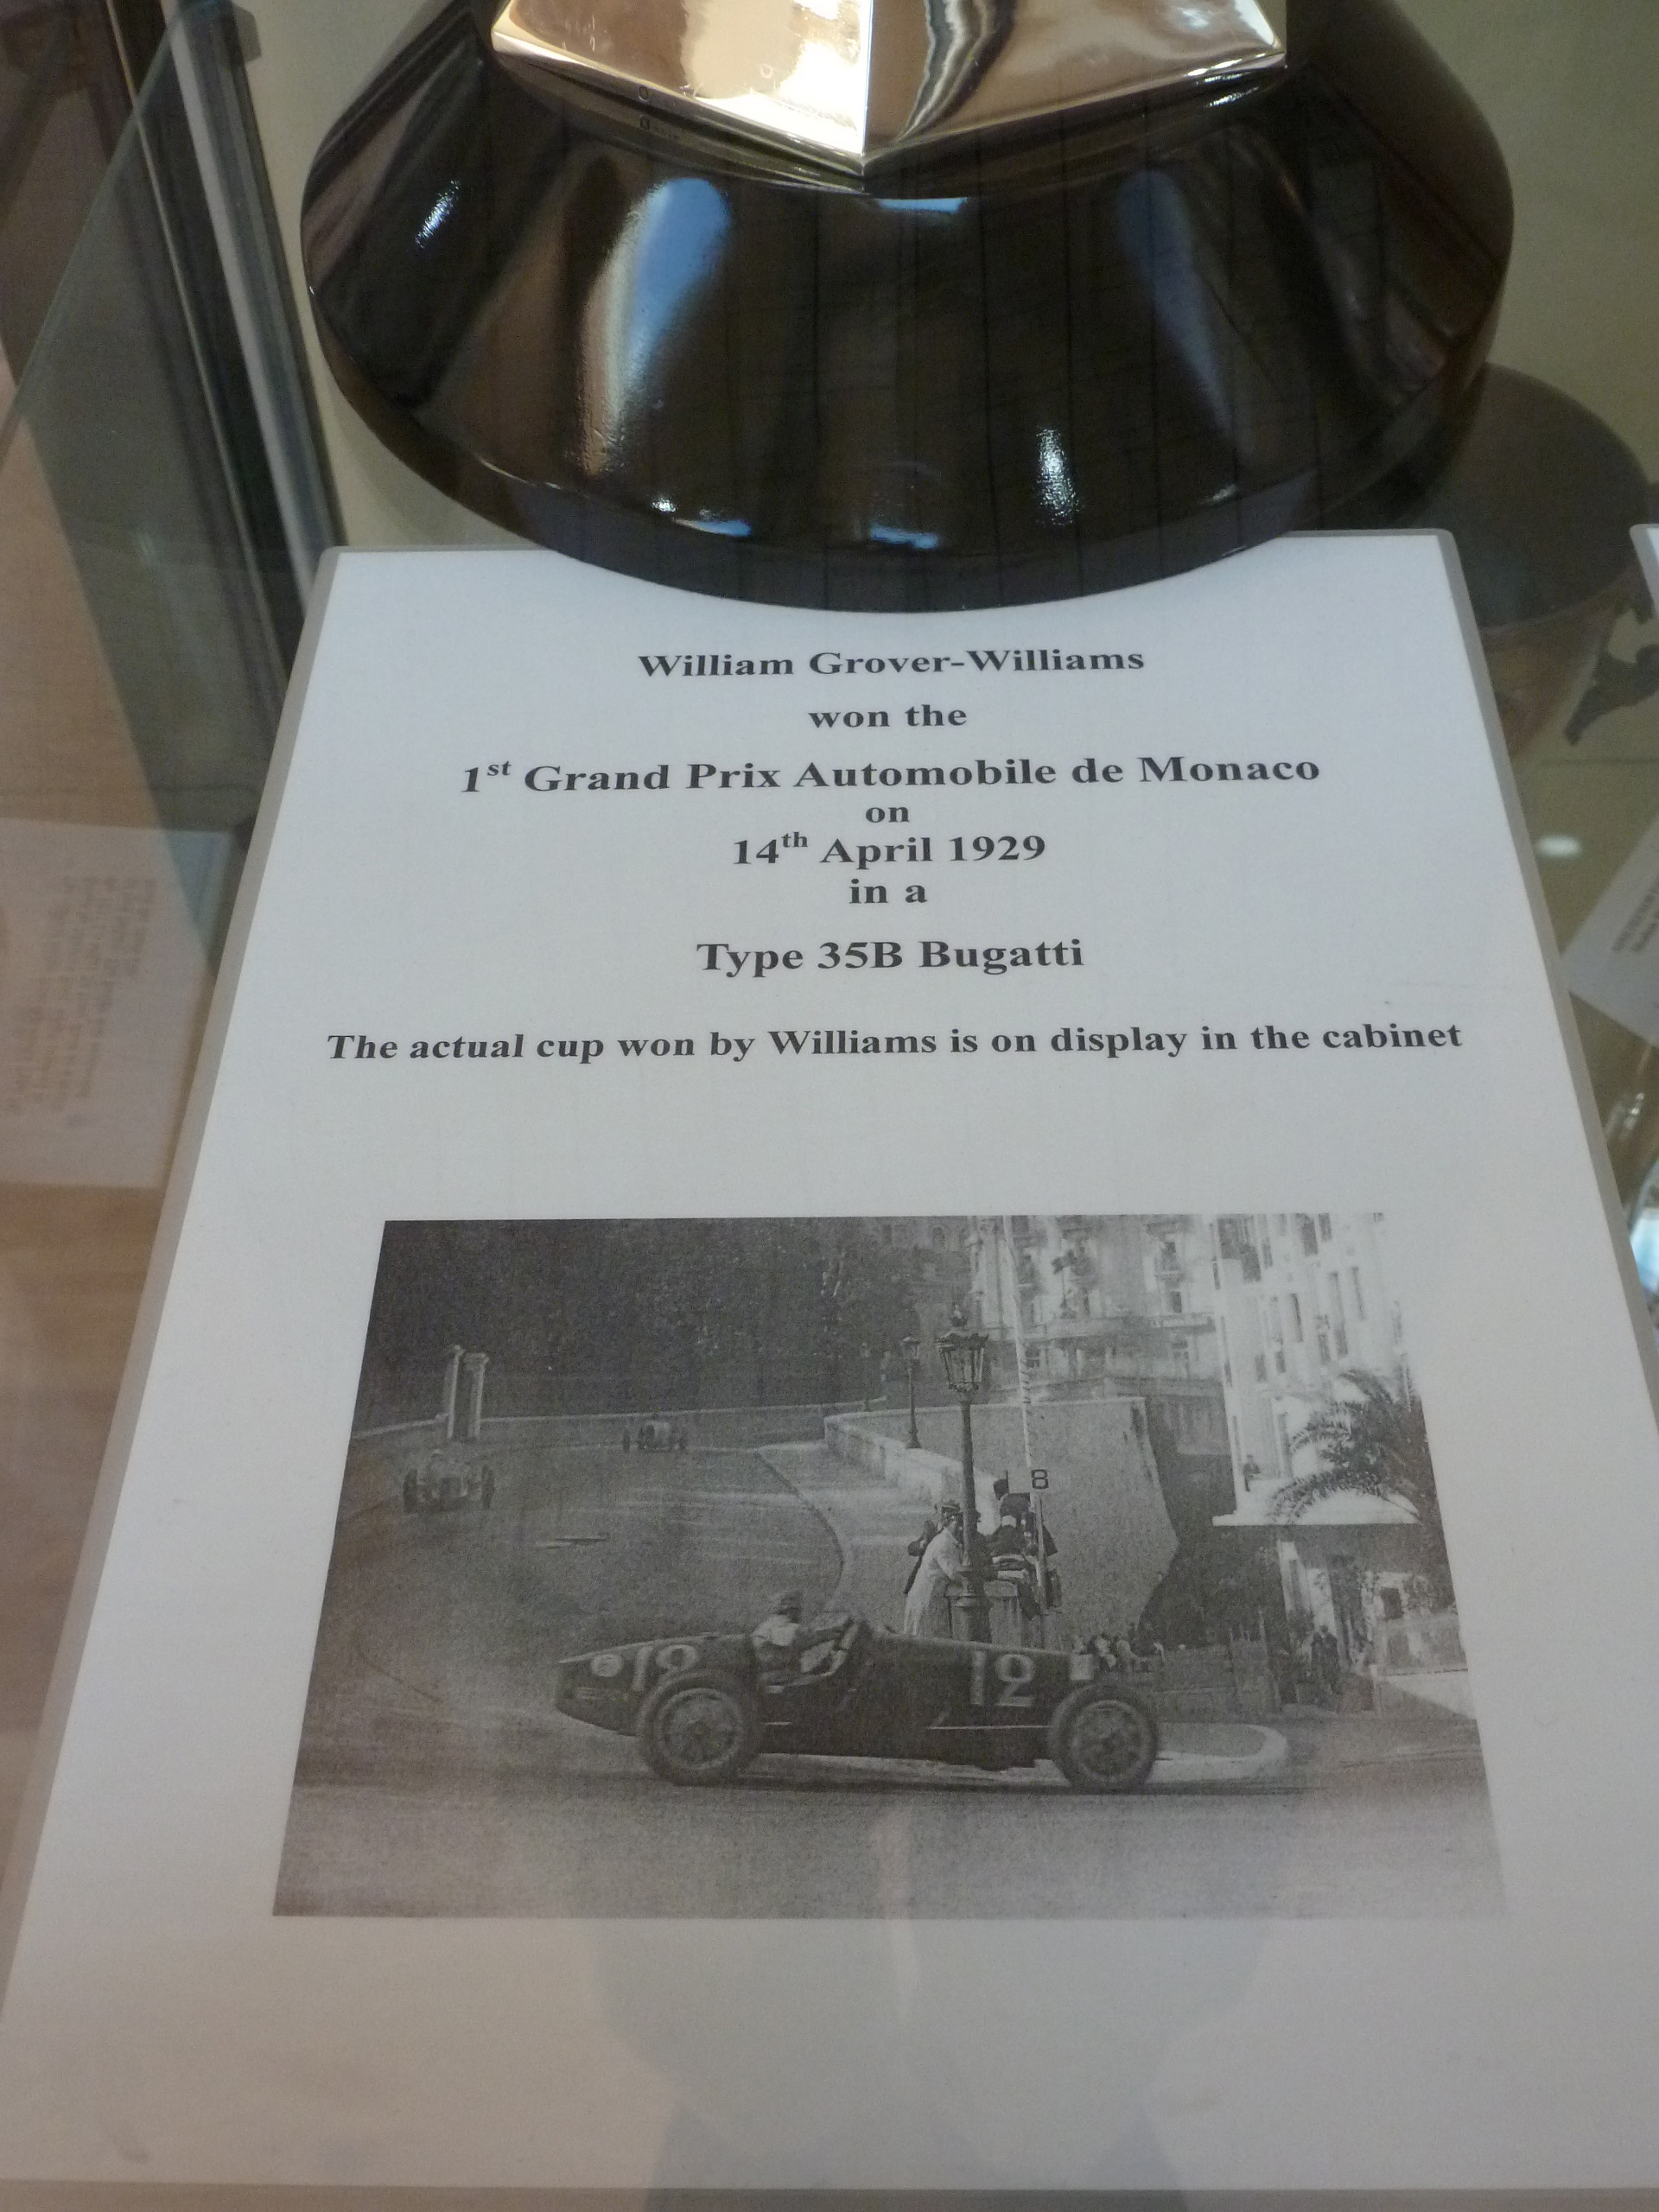 William Grover-Williams
won the
1st Grand Prix Automobile de Monaco
on
14th April 1929
in a
Type 35B Bugatti
The actual cup won by Williams is on display in the cabinet
8
12
12